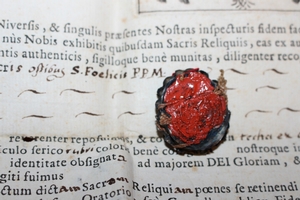 Niversis, & singulis præsentes Nostras inspecturis fidem fac
nùs Nobis exhibitis quibusdam Sacris Reliquiis, eas ex au
entis authenticis, sigilloque benè munitas, diligenter reco
S. Foelicis P.P.M.
reverenter reposui & co theca ex
culo serico rubri colori benè co nostroque in
identitate obsignat ad majorem DEI Gloriam, & S
giti fuimus
ctum dictam Sacram Reliquiam pœnes se retinendi
Oratorio